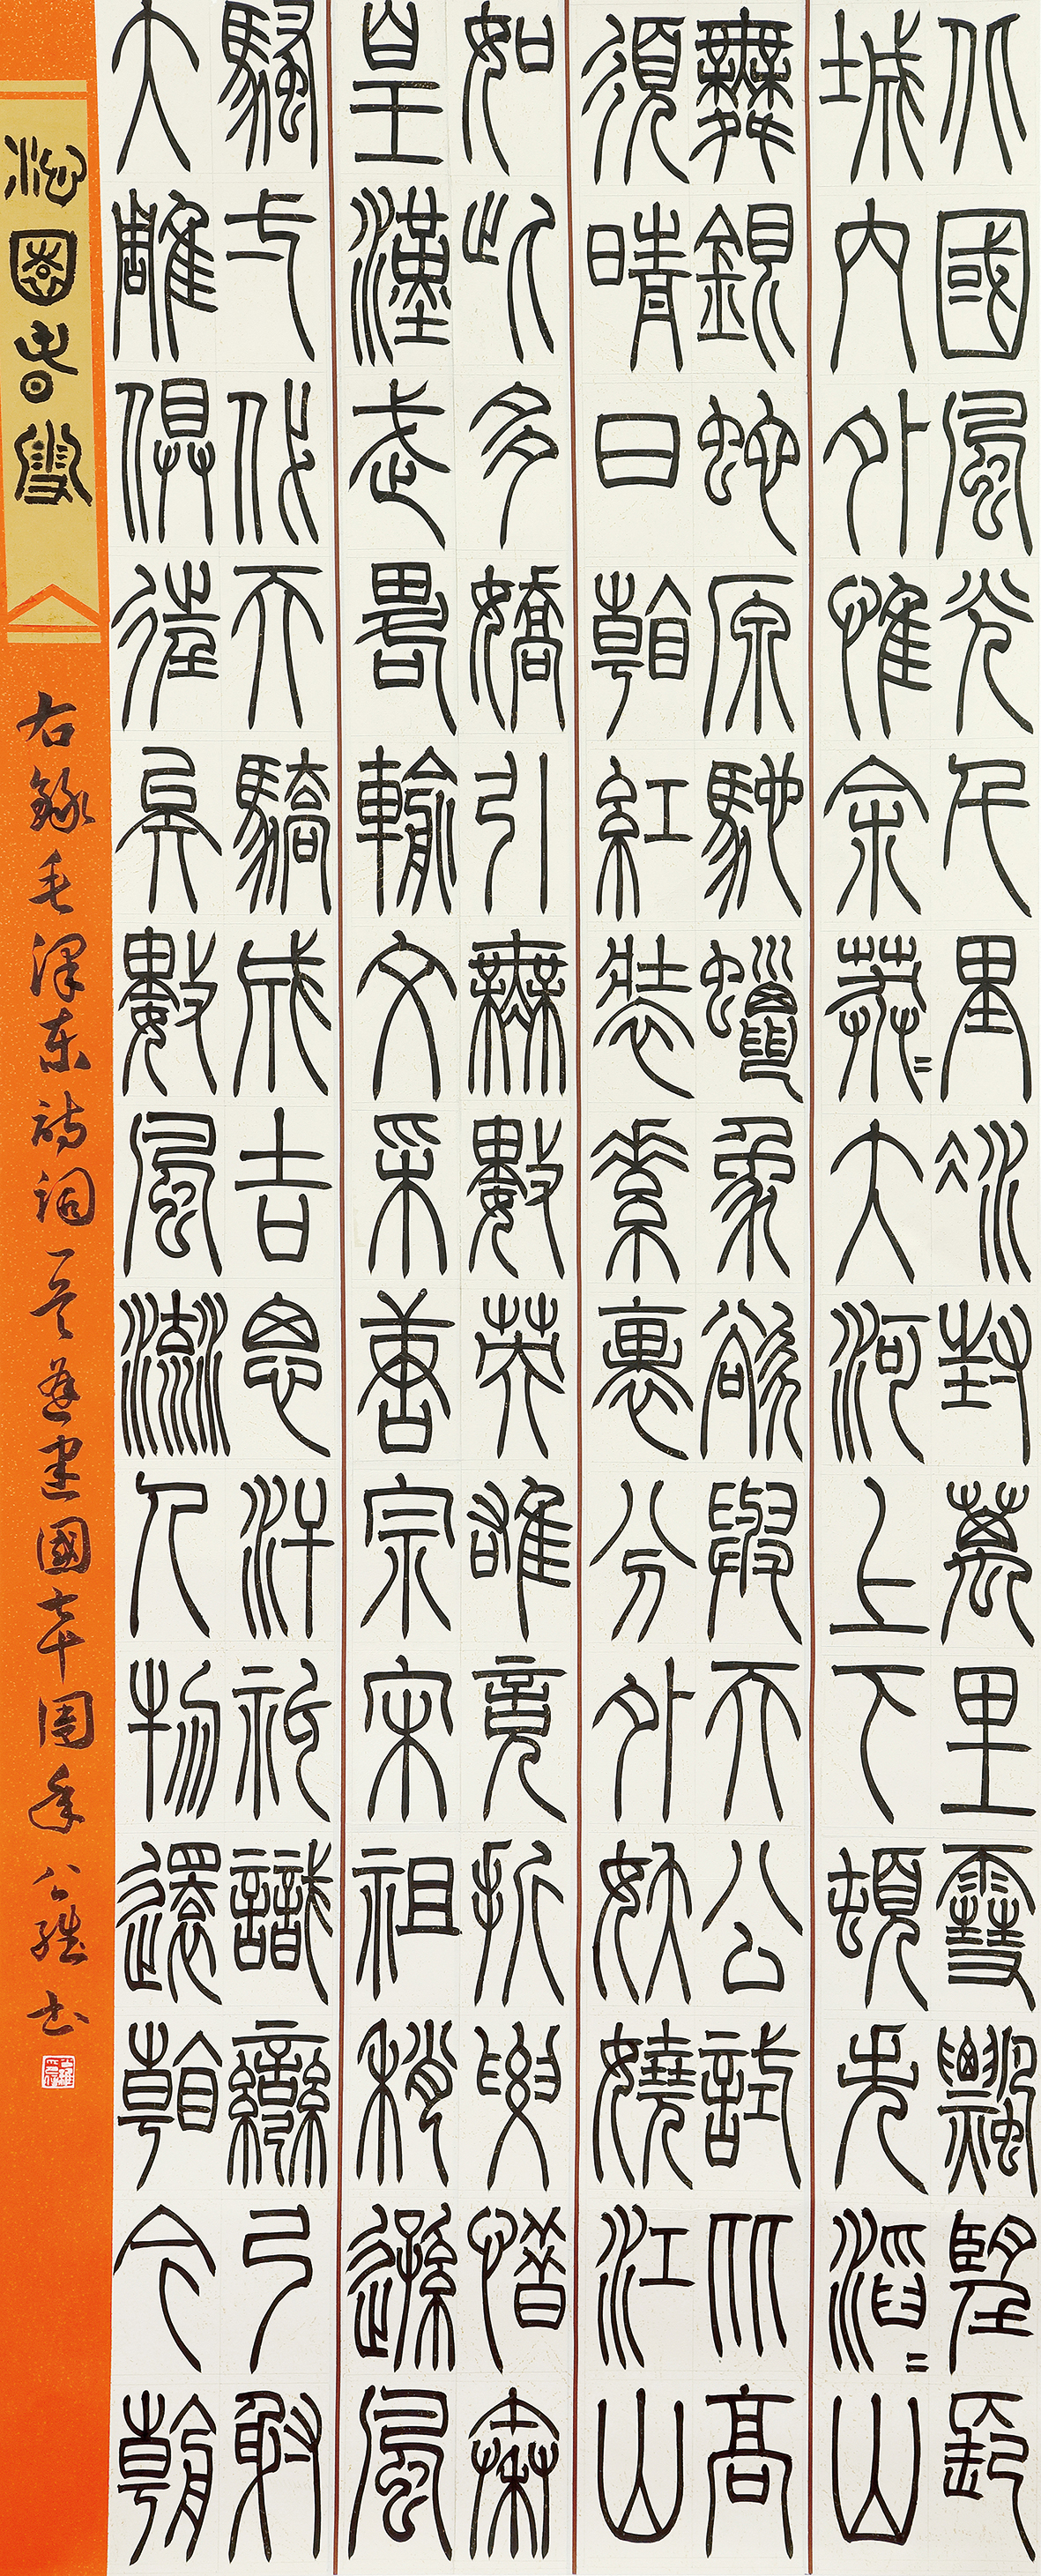 北國風光千里冰封萬里雪飄望長
城內外惟余莽〻大河上下頓失滔〻山
舞銀蛇原馳蠟象欲與天公試比高
須晴日看紅裝素裹分外妖嬈江山
如此多嬌引無數英雄競折腰惜秦
皇漢武略輸文采唐宗宋祖稍遜風
騷弌代天驕成吉思汗祇識彎弓射
大雕俱往矣數風流人物還看今朝
沁園春雪
右錄毛澤東詩詞一首為建國七十周年 书